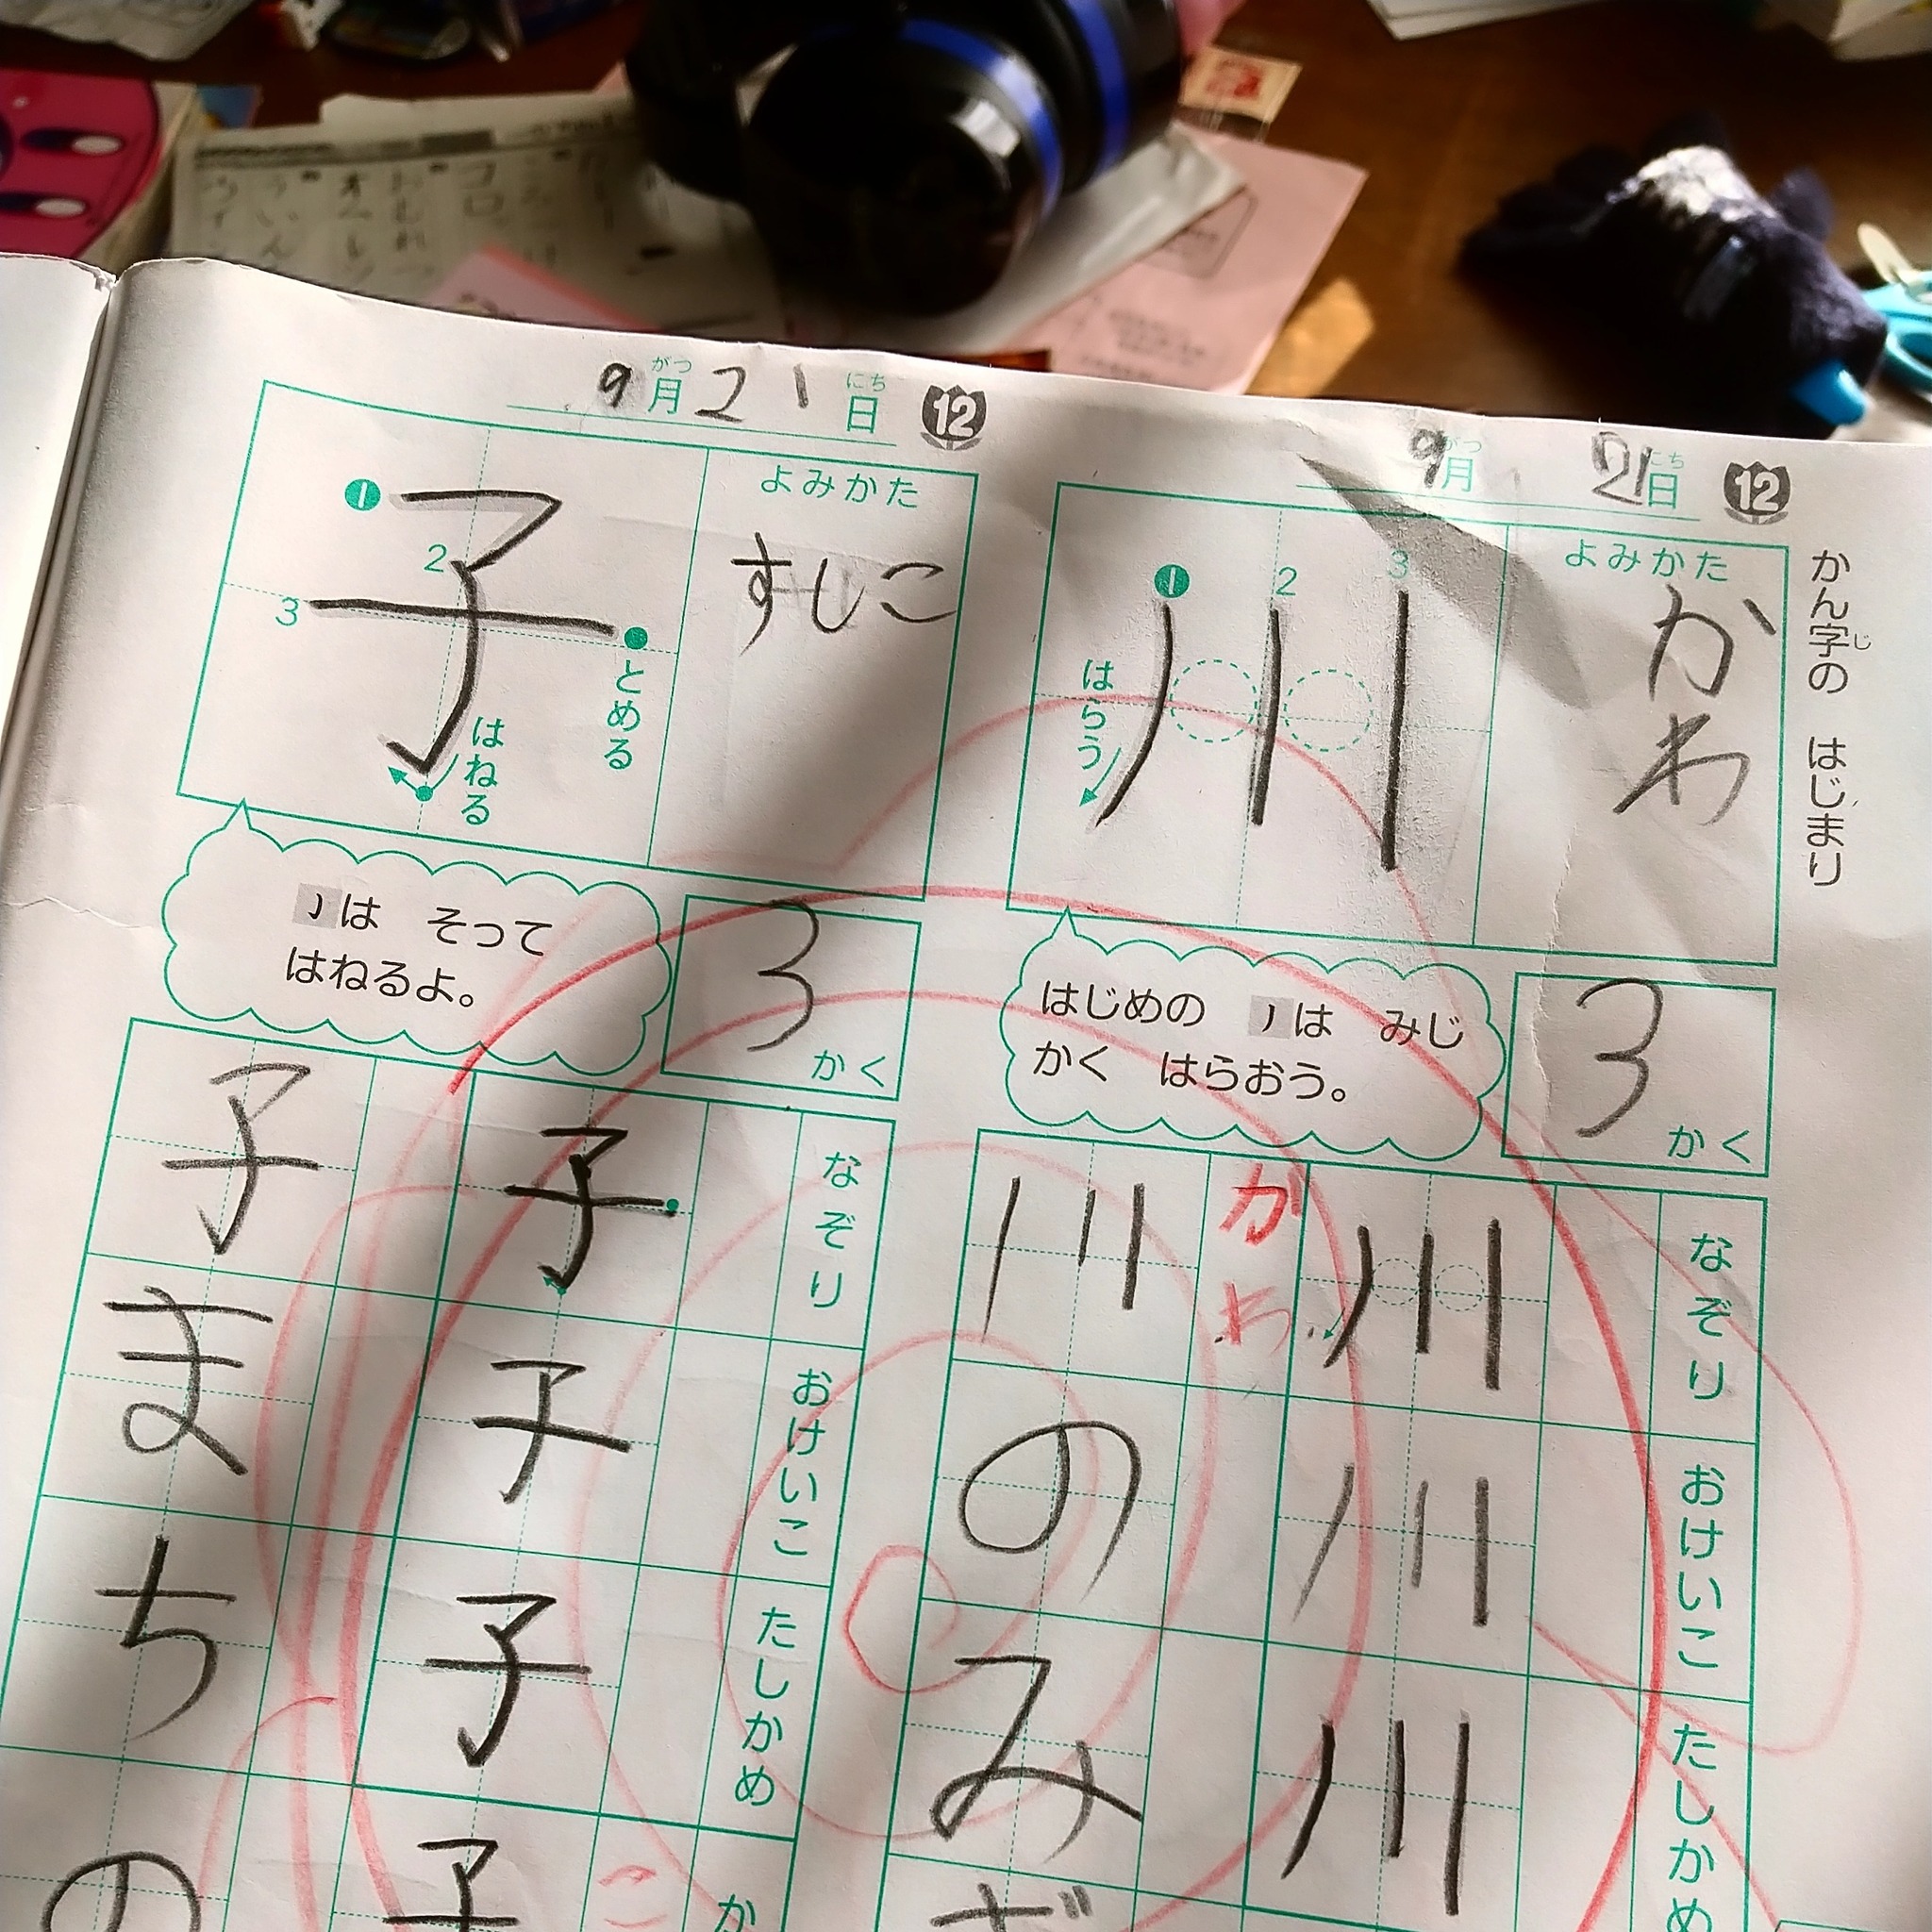 かん字の はじまり
じ
12
9月21日
がつ
にち
よみかた
かわ
1
2
3
はらう
はじめの ノは みじ
かく はらおう。
3かく
なぞり
おけいこ
たしかめ
川
川
川
かわ
川のみ
12
9月21日
がつ
にち
よみかた
すしこ
1
2
3
とめる
はねる
亅は そって
はねるよ。
3かく
なぞり
おけいこ
たしかめ
か
子
子
子
子
こ
子まちの